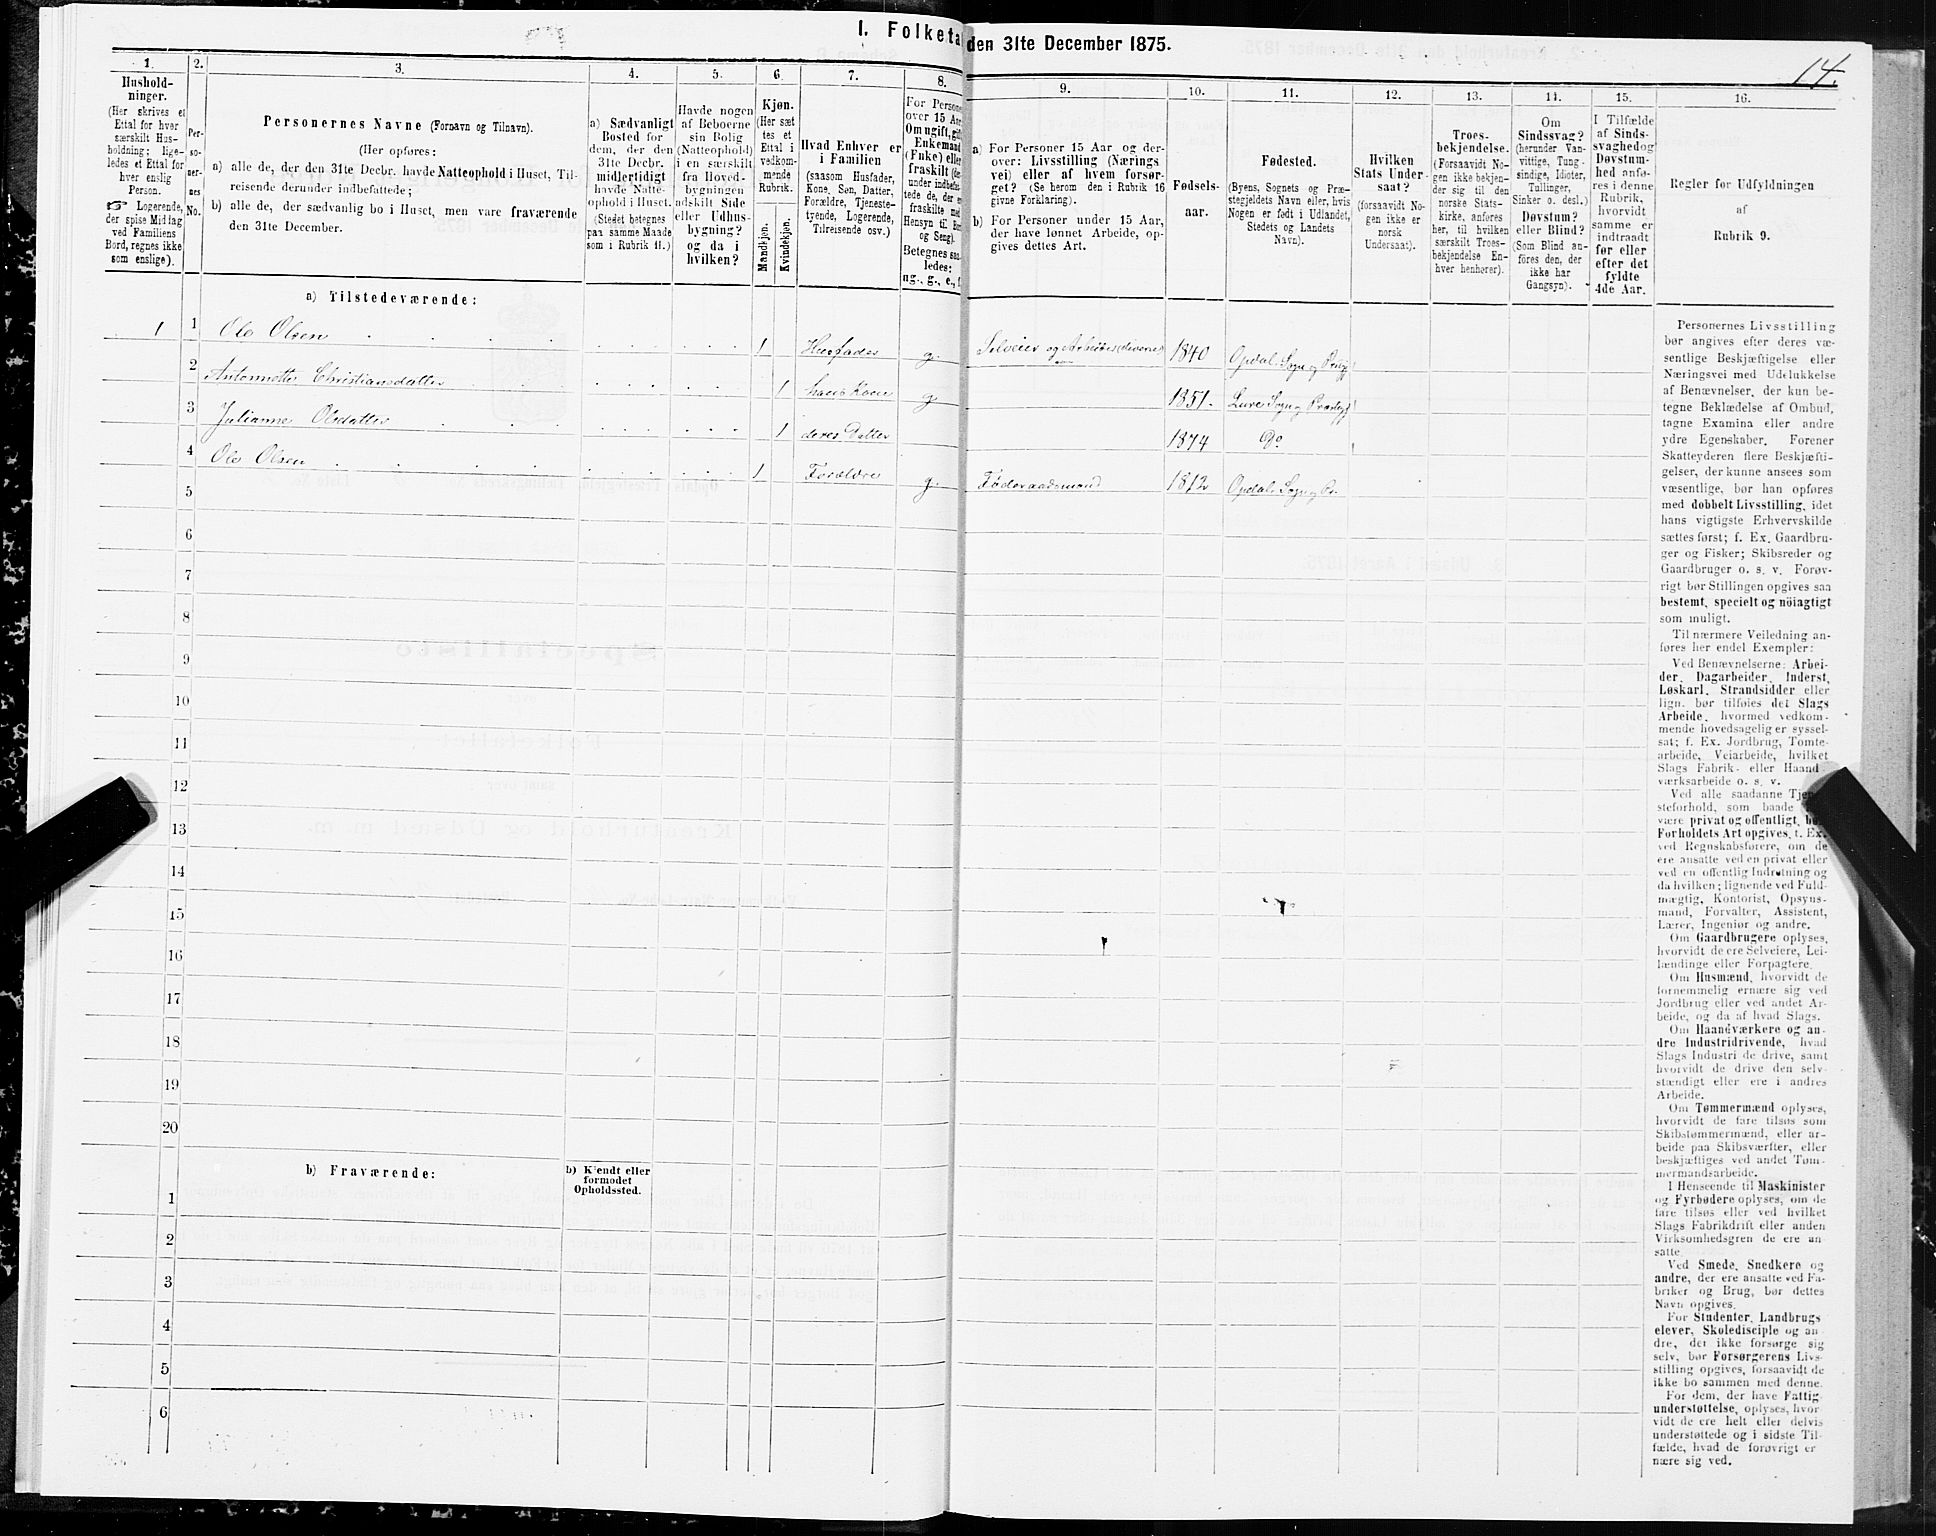 I. Folketa den 31te December 1875.
14.
1. 2. 3. 4. 5. 6. 7. 8. 9. 10. 11. 12. 13. 14. 15. 16.
Hushold-
ninger.
(Her skrives et
Ettal for hver
særskilt Hus-
holdning; lige-
ledes et Ettal for
hver enslig
Person.
☞ Logerende,
der spise Middag
ved Familiens
Bord, regnes ikke
som enslige).
Per-
so-
ner-
nes
No.
Personernes Navne (Fornavn og Tilnavn).
(Her opføres:
a) alle de, der den 31te Decbr. havde Natteophold i Huset, Til-
reisende derunder indbefattede;
b) alle de, der sædvanlig bo i Huset, men vare fraværende
den 31te December.
a) Sædvanligt
Bosted for
dem, der den
31te Decbr.
midlertidigt
havde Natte-
ophold i Huset.
(Stedet betegnes
paa samme Maade
som i Rubrik 11.)
Havde nogen
af Beboerne
sin Bolig
(Natteophold)
i en særskilt
fra Hoved-
bygningen
adskilt Side
eller Udhus-
bygning?
og da i
hvilken?
Kjøn.
(Her sæt
tes et
Ettal i
vedkom-
mende
Rubrik.
Mandkjøn.
Kvindekjøn.
Hvad Enhver er
i Familien
(saasom Husfader,
Kone, Søn, Datter,
Forældre, Tjeneste-
tyende, Logerende,
Tilreisende osv.)
For Persone
over 15 Aar
Om ugift, gift
Enkemand
(Enke) eller
fraskilt (der
under indbefat-
tede de, der er
fraskilte med
Hensyn til Bord
og Seng).
Betegnes saa-
ledes:
ug., g., e., f.
a) For Personer 15 Aar og der-
over: Livsstilling (Nærings
vei) eller af hvem forsør-
get? (Se herom den i Rubrik 16
givne Forklaring).
b) For Personer under 15 Aar,
der have lønnet Arbeide, op-
gives dettes Art.
Fødsels-
aar.
Fødested.
(Byens, Sognets og Præ-
stegjeldets Navn eller, hvis
Nogen er født i Udlandet,
Stedets og Landets
Navn).
Hvilken
Stats Under-
saat?
(forsaavidt No-
gen ikke er
norsk
Undersaat).
Troes-
bekjendelse.
(Forsaavidt No-
gen ikke bekjen-
der sig til den
norske Stats-
kirke, anføres
her, til hvilken
særskilt Troes-
bekjendelse En-
hver henhører).
Om
Sindssvag?
(herunder Van-
vittige, Tung-
sindige, Idioter,
Tullinger,
Sinker o. desl.)
Døvstum?
eller Blind?
(Som Blind an-
føres den, der
ikke har
Gangsyn).
I Tilfælde
af Sinds-
svaghed og
Døvstum-
hed anfø-
res i denne
Rubrik,
hvorvidt
samme er
indtraadt
før eller
efter det
fyldte
4de Aar.
Regler for Udfyldningen
af
Rubrik 9.
a) Tilstedeværende:
1 1 Ole Olsen 1 Husfader g. Selveier og Arbeider (diverse) 1840 Opdal Sogn og Prgj
2 Antonnette Christiansdatter 1 hans Kone g 1851. Lure Sogn og Prestgj
3 Julianne Olsdatter 1 deres Datter 1874 Do
4 Ole Olsen 1 Forældre g. Føderaadsmand 1812 Opdal Sogn og Pr.
5
6
7
8
9
10
11
12
13
14
15
16
17
18
19
20
b) Fraværende:
b) Kjendt eller
formodet
Opholdssted.
1
2
3
4
5
6
Personernes Livsstilling
bør angives efter deres væ-
sentlige Beskjæftigelse eller
Næringsvei med Udelukkelse
af Benævnelser, der kun be-
tegne Beklædelse af Ombud,
tagne Examina eller andre
ydre Egenskaber. Forener
Skatteyderen flere Beskjæfti-
gelser, der kunne ansees som
væsentlige, bør han opføres
med dobbelt Livsstilling, idet
hans vigtigste Erhvervskilde
sættes først; f. Ex. Gaardbru-
ger og Fisker; Skibsreder og
Gaardbruger o. s. v. Forøv-
rigt bør Stillingen opgives saa
bestemt, specielt og nöiagtigt
som muligt.
Til nærmere Veiledning an-
føres her endel Exempler:
Ved Benævnelserne: Arbei-
der, Dagarbeider, Inderst,
Løskarl, Strandsidder eller
lign. bør tilføies det Slags
Arbeide, hvormed vedkom-
mende hovedsagelig er syssel-
sat; f. Ex. Jordbrug, Tomte-
arbeide, Veiarbeide, hvilket
Slags Fabrik- eller Haand
værksarbeide o. s. v.
Ved alle saadanne Tjen
steforhold, som baade
være privat og offentligt, bø
Forholdets Art opgives, f. Ex.
ved Regnskabsførere, om de
ere ansatte ved en privat eller
ved en offentlig Indretning og
da hvilken; lignende ved Fuld-
mægtig, Kontorist, Opsyns-
mand, Forvalter, Assistent,
Lærer, Ingeniør og andre.
Om Gaardbrugere oplyses,
hvorvidt de ere Selveiere, Lei-
lændinge eller Forpagtere.
Om Husmænd, hvorvidt de
fornemmelig ernære sig ved
Jordbrug eller ved andet Ar-
beide, og da af hvad Slags.
Om Haandværkere og an-
dre Industridrivende, hvad
Slags Industri de drive, samt
hvorvidt de drive den selv-
stændigt eller ere i andres
Arbeide.
Om Tømmermænd oplyses,
hvorvidt de fare tilsøs som
Skibstømmermænd, eller ar-
beide paa Skibsværfter, eller
beskjæftiges ved andet Tøm-
mermandsarbeide.
I Henseende til Maskinister
og Fyrbødere oplyses, om de
fare tilsøs eller ved hvilket
Slags Fabrikdrift eller anden
Virksomhedsgren de ere an-
satte.
Ved Smede, Snedkere og
andre, der ere ansatte ved Fa-
briker og Brug, bør dettes
Navn opgives.
For Studenter, Landbrugs
elever, Skoledisciple og an-
dre, der ikke forsørge sig
selv, bør Forsørgerens Livs-
stilling opgives, forsaavidt de
ikke bo sammen med denne.
For dem, der have Fattig
understøttelse, oplyses, hvor-
vidt de ere helt eller delvis
understøttede og i sidste Til-
fælde, hvad de forøvrigt er
nære sig ved.